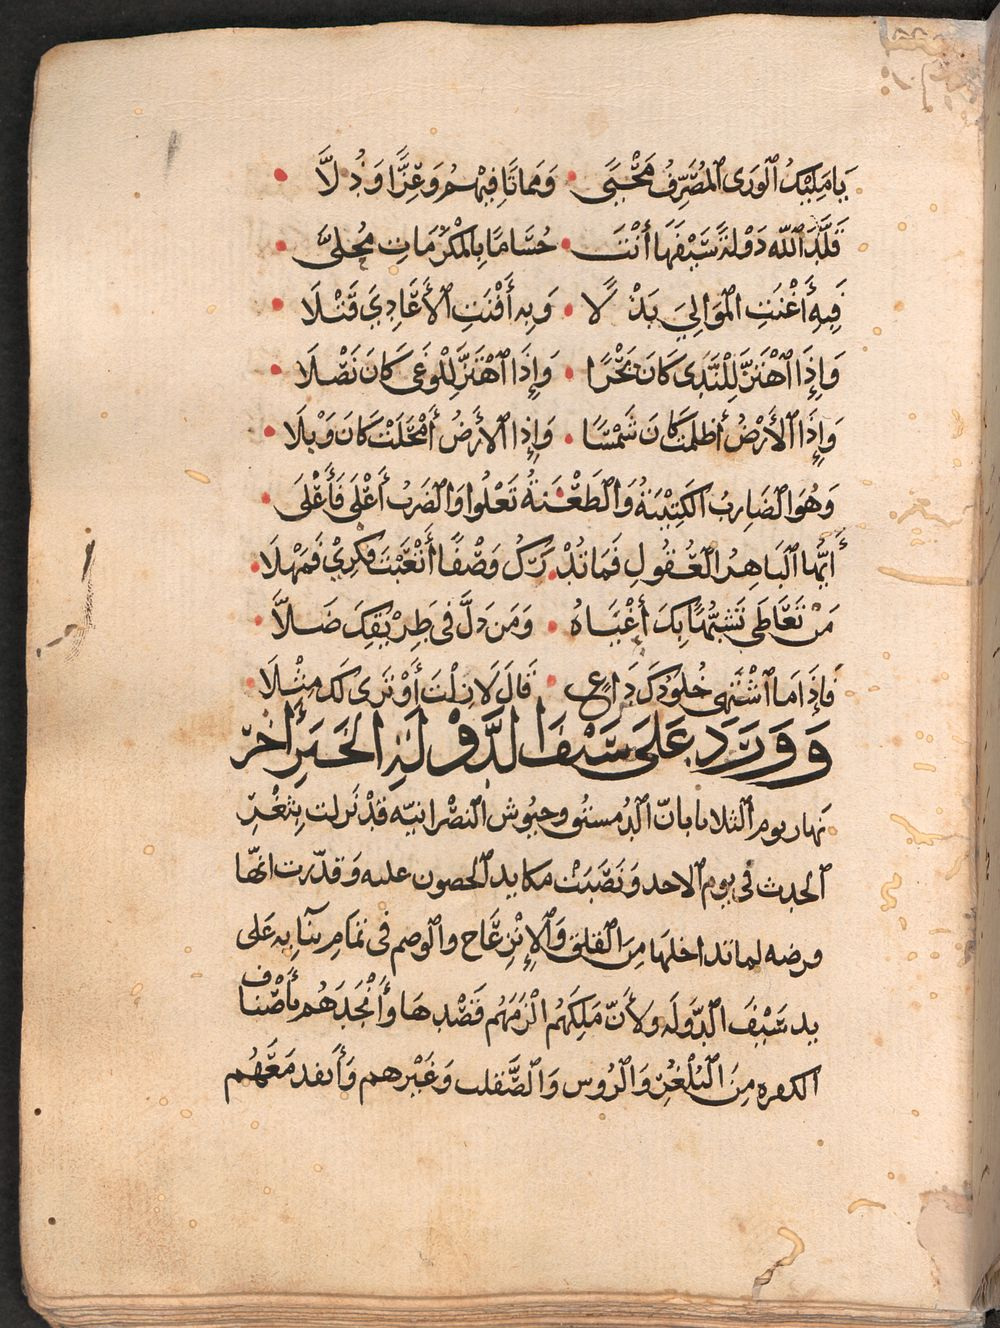 يَا مَلِيْكَ ٱلْوَرَى ٱلْمُصَرِّفُ مَحْيًى • وَمَمَاتًا فِيْهِمُ وَعِزًّا وَذُلَّا •
قَلَّدَ ٱللّٰه دَوْلَةً سَيْفُهَا أَنْتَ • حُسَامًا بِالمَكْرُمَاتِ مُحَلىَّ •
فَبِهِ أَغْنَتِ الْمَوَالِيَ بَذْلًا • وَبِهِ أَفْنَتِ ٱلأَعَادِيَ قَتْلَا •
وَإِذَا ٱهْتَزَّ لِلنَّدَى كَانَ بَحْرًا • وَإِذَا ٱهْتَزَّ لِلْوَغَى كَانَ نَصْلَا •
وَإِذَا الأَرْضُ أَظلَمَتْ كَانَ شَمْسًا • وَإِذا ٱلأَرْضُ أَمْحَلَتْ كَانَ وَبْلَا •
وَهُوَ الضَارِبُ الكَتِيْبَةُ وَالْطَعْنَةُ تَغْلُوا وَالْضَربُ أَغْلَى فَأَغْلَى •
أَيُّهَا ٱلْبَاهِرُ العُقُولِ فَمَا تُدْرَكُ • وَصْفًا أَتْعَبْتَ فِكْرِيْ فَمَهْلَا •
مَنْ تَعَاطَى تَشَبُّهًا بِكَ أَعْيَاهُ • وَمَن دَلَّ فى طَرِيْقِكَ ضَلَّا •
فَإِذَا مَا ٱشْتَهى خُلُودَكَ دَاعٍ • قَالَ لَا زِلْتَ أَوْ تَرَى لَكَ مِثْلَا •
وَوَرَدَ عَلَى سَيْفِ الدَّوْلَةِ الخَبَرُ آخر
نهار يوم الثلاثا بانّ الدُمستُق وجيُوش النصْرانيّه قدْ نَزلت بِثغْرِ
الحدث فى يوم الاحد وَنَصَبَتْ مكايد الحصون عليه وَقدّرت انهّا
فرصه لما تداخلهَا مِنَ القلق وَالإِنْزِعَاج والوصم فى تمامِ بنآيه عَلى
يد سَيْفِ الدّوله ولأَنّ مَلِكهُم الْزَمَهُم قَصْدهَا وَأَنْجَدَهُم بأَصْنَافِ
الكفره مِنَ البُلْغُرِ وَالرُوس وَالصَّقلب وَغَيْرهم وَأَنفد مَعَهُم